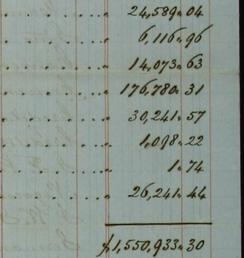 24,589 " 04
6,116 " 96
14,073 " 63
176,780 " 31
30,241 " 57
1,098 " 22
1 " 74
26,241 " 44
$1,550,933 " 30